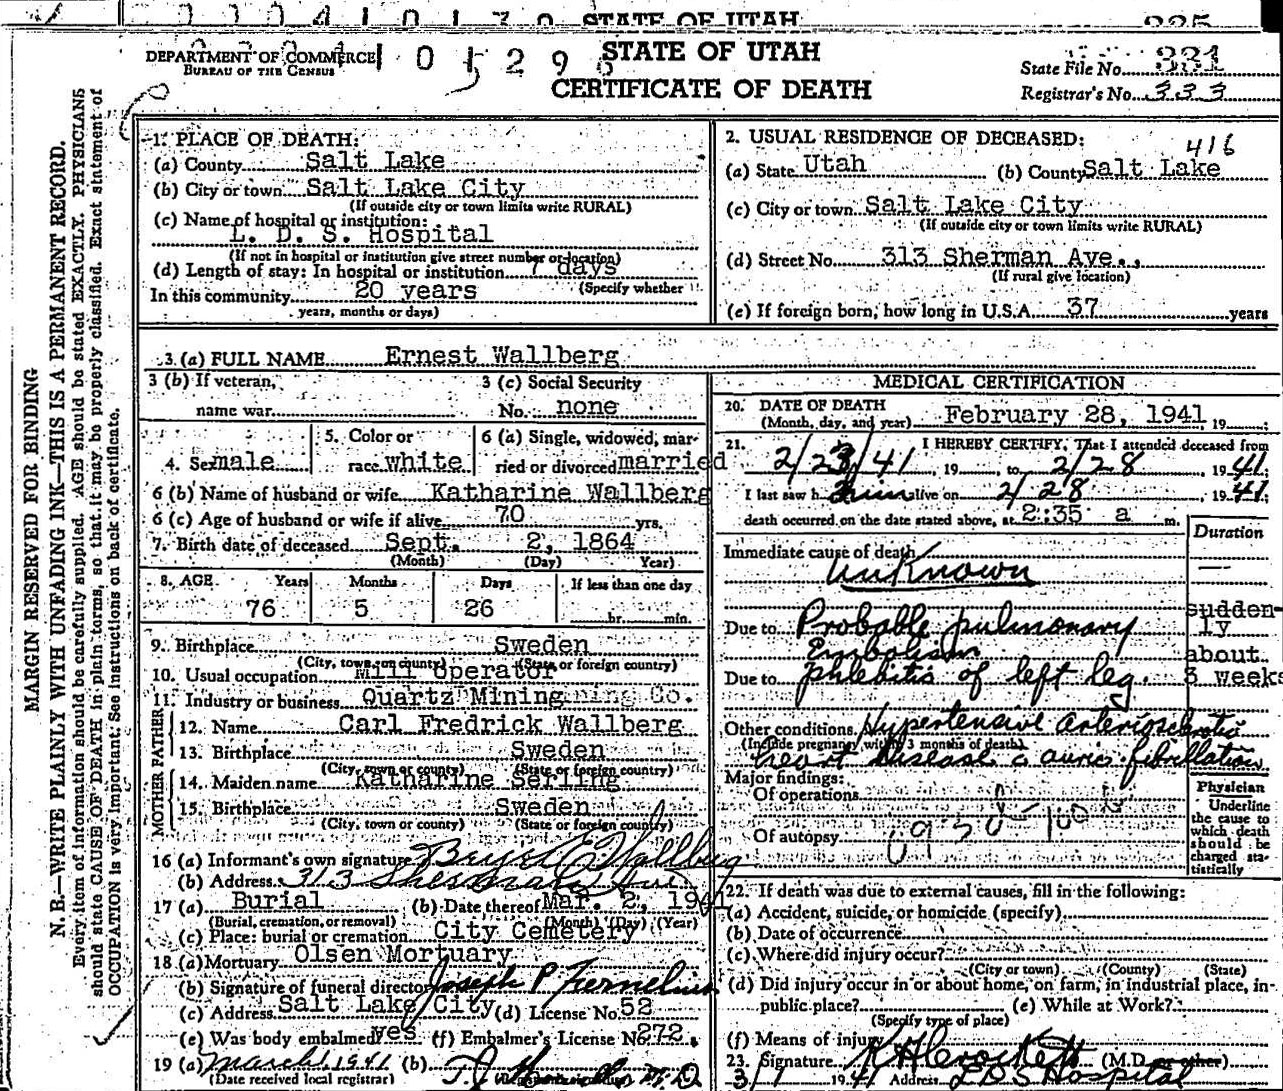 STATE OF UTAH
DEPARTMENT OF COMMERCE
BUREAU OF THE CENSUS
STATE OF UTAH
CERTIFICATE OF DEATH
State File No. 331
Registrar's No. 333
MARGIN RESERVED FOR BINDING
N. B.—WRITE PLAINLY WITH UNFADING INK—THIS IS A PERMANENT RECORD.
Every item of information should be carefully supplied. AGE should be stated EXACTLY. PHYSICIANS
should state CAUSE OF DEATH in plain terms, so that it may be properly classified. Exact statement of
OCCUPATION is very important. See instructions on back of certificate.
1. PLACE OF DEATH:
(a) County Salt Lake
(b) City or town Salt Lake City
(If outside city or town limits write RURAL)
(c) Name of hospital or institution:
L. D. S. Hospital
(If not in hospital or institution give street number or location)
(d) Length of stay: In hospital or institution 7 days
(Specify whether
In this community 20 years
years, months or days)
2. USUAL RESIDENCE OF DECEASED:
416
(a) State Utah (b) County Salt Lake
(c) City or town Salt Lake City
(If outside city or town limits write RURAL)
(d) Street No. 313 Sherman Ave.,
(If rural give location)
(e) If foreign born, how long in U.S.A. 37 years
3. (a) FULL NAME Ernest Wallberg
3 (b) If veteran,
name war
3 (c) Social Security
No. none
4. Sex male
5. Color or
race white
6 (a) Single, widowed, mar-
ried or divorced married
6 (b) Name of husband or wife Katharine Wallberg
6 (c) Age of husband or wife if alive 70 yrs.
7. Birth date of deceased Sept. 2, 1864
(Month) (Day) Year)
8. AGE Years Months Days If less than one day
76 5 26 hr. min.
9. Birthplace Sweden
(City, town or county) (State or foreign country)
10. Usual occupation Mill Operator
11. Industry or business Quartz Mining Co.
FATHER
12. Name Carl Fredrick Wallberg
13. Birthplace Sweden
(City, town or county) (State or foreign country)
MOTHER
14. Maiden name Katharine Serling
15. Birthplace Sweden
(City, town or county) (State or foreign country)
16 (a) Informant's own signature Wallberg
(b) Address 313 Sherman Ave
17 (a) Burial (b) Date thereof Mar. 2, 1941
(Burial, cremation, or removal) (Month) (Day) (Year)
(c) Place: burial or cremation City Cemetery
18 (a) Mortuary Olsen Mortuary
(b) Signature of funeral director Joseph P Fernelius
(c) Address Salt Lake City (d) License No. 52
(e) Was body embalmed yes (f) Embalmer's License No. 272.
19 (a) March 1, 1941 (b) M.D
(Date received local registrar)
MEDICAL CERTIFICATION
20. DATE OF DEATH
(Month, day, and year) February 28, 1941, 19
21. I HEREBY CERTIFY, That I attended deceased from
2/23/41, 19 , to 2/28, 1941;
I last saw him alive on 2/28, 1941;
death occurred on the date stated above, at 2:35 a m.
Duration
Immediate cause of death
Unknown
Due to Probable pulmonary
Embolism
suddenly
Due to Phlebitis of left leg.
about
3 weeks
Other conditions Hypertensive arteriosclerotic
(Include pregnancy within 3 months of death)
heart disease c auric. fibrillation
Major findings:
Of operations
Of autopsy
Physician
Underline
the cause to
which death
should be
charged sta-
tistically
22. If death was due to external causes, fill in the following:
(a) Accident, suicide, or homicide (specify)
(b) Date of occurrence
(c) Where did injury occur?
(City or town) (County) (State)
(d) Did injury occur in or about home, on farm, in industrial place, in
public place? (e) While at Work?
(Specify type of place)
(f) Means of injury
23. Signature K H Crockett (M.D. or other)
3/1 1941 Address LDS Hospital